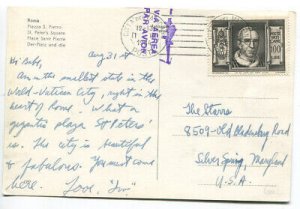 Roma
Piazza S. Pietro
St. Peter's Square
Place Saint Pierre
Der Petz und die
VIA AEREA
PAR AVION
100
Aug 31st
Hi Babs,
Am in the smallest state in the
world - Vatican City, right in the
heart of Rome. What a
gigantic plaza St Peters'
is. The city is beautiful
& fabulous. You must come
here. Love, "Im".
The Starrs
8509 - Old Bladensburg Road
Silver Spring, Maryland
U.S.A.